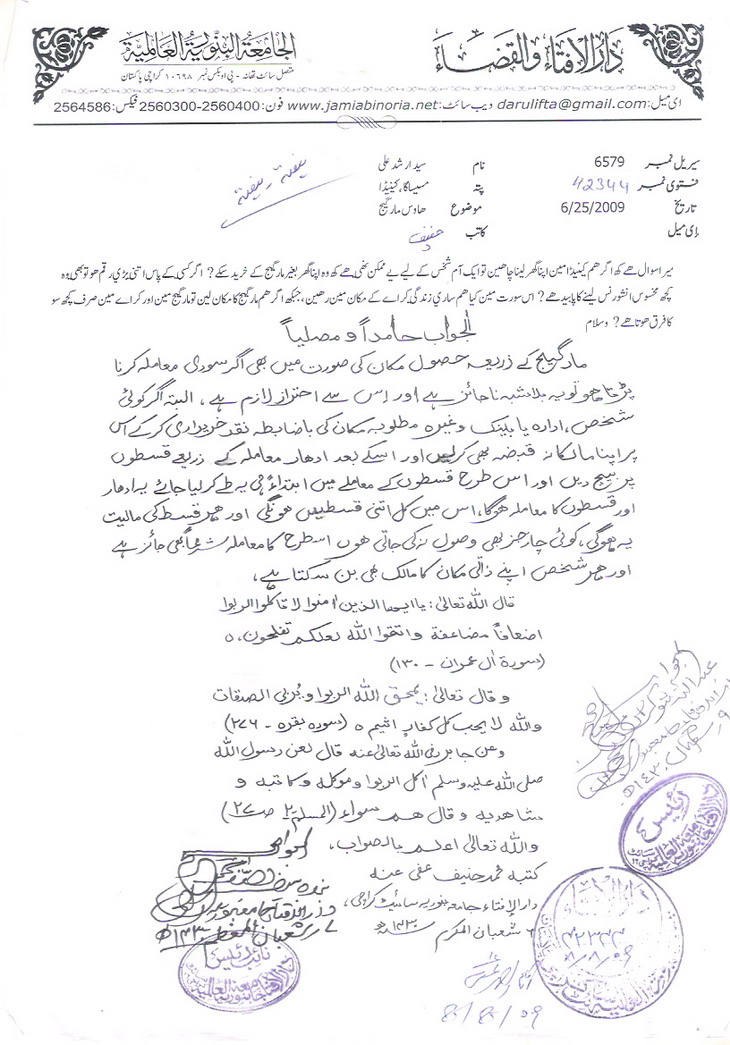 دار الافتاء والقضاء
الجامعة البنورية العالمية
متصل سائٹ تھانہ - پی او بکس نمبر ۱۰۶۹۸ کراچی پاکستان
ای میل: darulifta@gmail.com ویب سائٹ: www.jamiabinoria.net فون: 2560300-2560400 فیکس: 2564586
سیریل نمبر 6579 نام سید ارشد علی
فتوی نمبر 42344 پتہ مسیساگا، کینیڈا
تاریخ 6/25/2009 موضوع هاوس مارگیج
ای میل کاتب حنیف
میرا سوال هے که اگر هم کینیڈا مین اپنا گھر لینا چاهین تو ایک آم شخص کے لیے یے ممکن نهی هے که وه اپنا گھر بغیر مارگیج کے خرید سکے? اگر کسی کے پاس اتنی بڑي رقم هو تو بهی وه
کچھ مخسوس انشورنس لینے کا پابید هے? اس سورت مین کیا هم ساري زندگی کراے کے مکان مین رهین، جبکه اگر هم مارگیج کا مکان لین تو مارگیج مین اور کراے مین صرف کچھ سو
کا فرق هوتا هے? وسلام
الجواب حامداً و مصلیاً
مارگیج کے ذریعہ حصول مکان کی صورت میں بھی اگر سودی معاملہ کرنا
پڑتا ہو تو یہ بلاشبہ ناجائز ہے اور اس سے احتراز لازم ہے، البتہ اگر کوئی
شخص، ادارہ یا بینک وغیرہ مطلوبہ مکان کی باضابطہ نقد خریداری کرکے اس
پر اپنا مالکانہ قبضہ بھی کرلیں اور اسکے بعد ادھار معاملہ کے ذریعے قسطوں
پر بیچ دیں اور اس طرح قسطوں کے معاملے میں ابتداءً ہی یہ طے کرلیا جائے یہ ادھار
اور قسطوں کا معاملہ ہوگا، اس میں کل اتنی قسطیں ہونگی اور ہر قسط کی مالیت
یہ ہوگی، کوئی چارجز بھی وصول نہ کی جاتی ہوں اسطرح کا معاملہ شرعاً بھی جائز ہے
اور ہر شخص اپنے ذاتی مکان کا مالک بھی بن سکتا ہے،
قال اللہ تعالیٰ: یا ایھا الذین اٰمنوا لا تاکلوا الربوا
اضعافاً مضاعفة واتقوا اللہ لعلکم تفلحون، ہ
(سورة اٰل عمران - ۱۳۰)
و قال تعالیٰ: یمحق اللہ الربوا و یُربی الصدقات
واللہ لا یحب کل کفارٍ اثیم ہ (سورہ بقرہ - ۲۷۶)
وعن جابر رضی اللہ تعالیٰ عنہ قال لعن رسول اللہ
صلی اللہ علیہ وسلم اٰکل الربوا وموکلہ و کاتبہ و
شاھدیہ و قال ھم سواء (المسلم ۲ ص۲۷)
واللہ تعالیٰ اعلم بالصواب،
کتبہ محمد حنیف عفی عنہ
دارالافتاء جامعہ بنوریہ سائیٹ کراچی،
۶ شعبان المکرم ۱۴۳۰ھ
دار الافتاء
۴۲۳۴۴
۸/۸/۰۹
رئیس
نائب رئیس